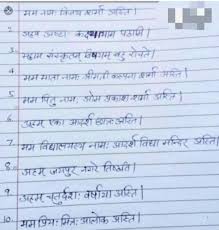 1. मम नाम विनय शर्मा अस्ति।
2. अहम् अष्टमी कक्षायाम पठामि।
3. मह्यम संस्कृतम् विषयम् बहु रोचते।
4. मम माता नाम श्रीमती कल्पना शर्मा अस्ति।
5. मम पितु नाम ओम प्रकाश शर्मा अस्ति।
6. अहम् एका आदर्श छात्रा अस्ति।
7. मम विद्यालयस्य नाम आदर्श विद्या मन्दिर अस्ति।
8. अहम् जयपुर नगरे तिष्ठति।
9. अहम् चतुर्दश वर्षीया अस्ति।
10. मम प्रिय मित्र आलोक अस्ति।